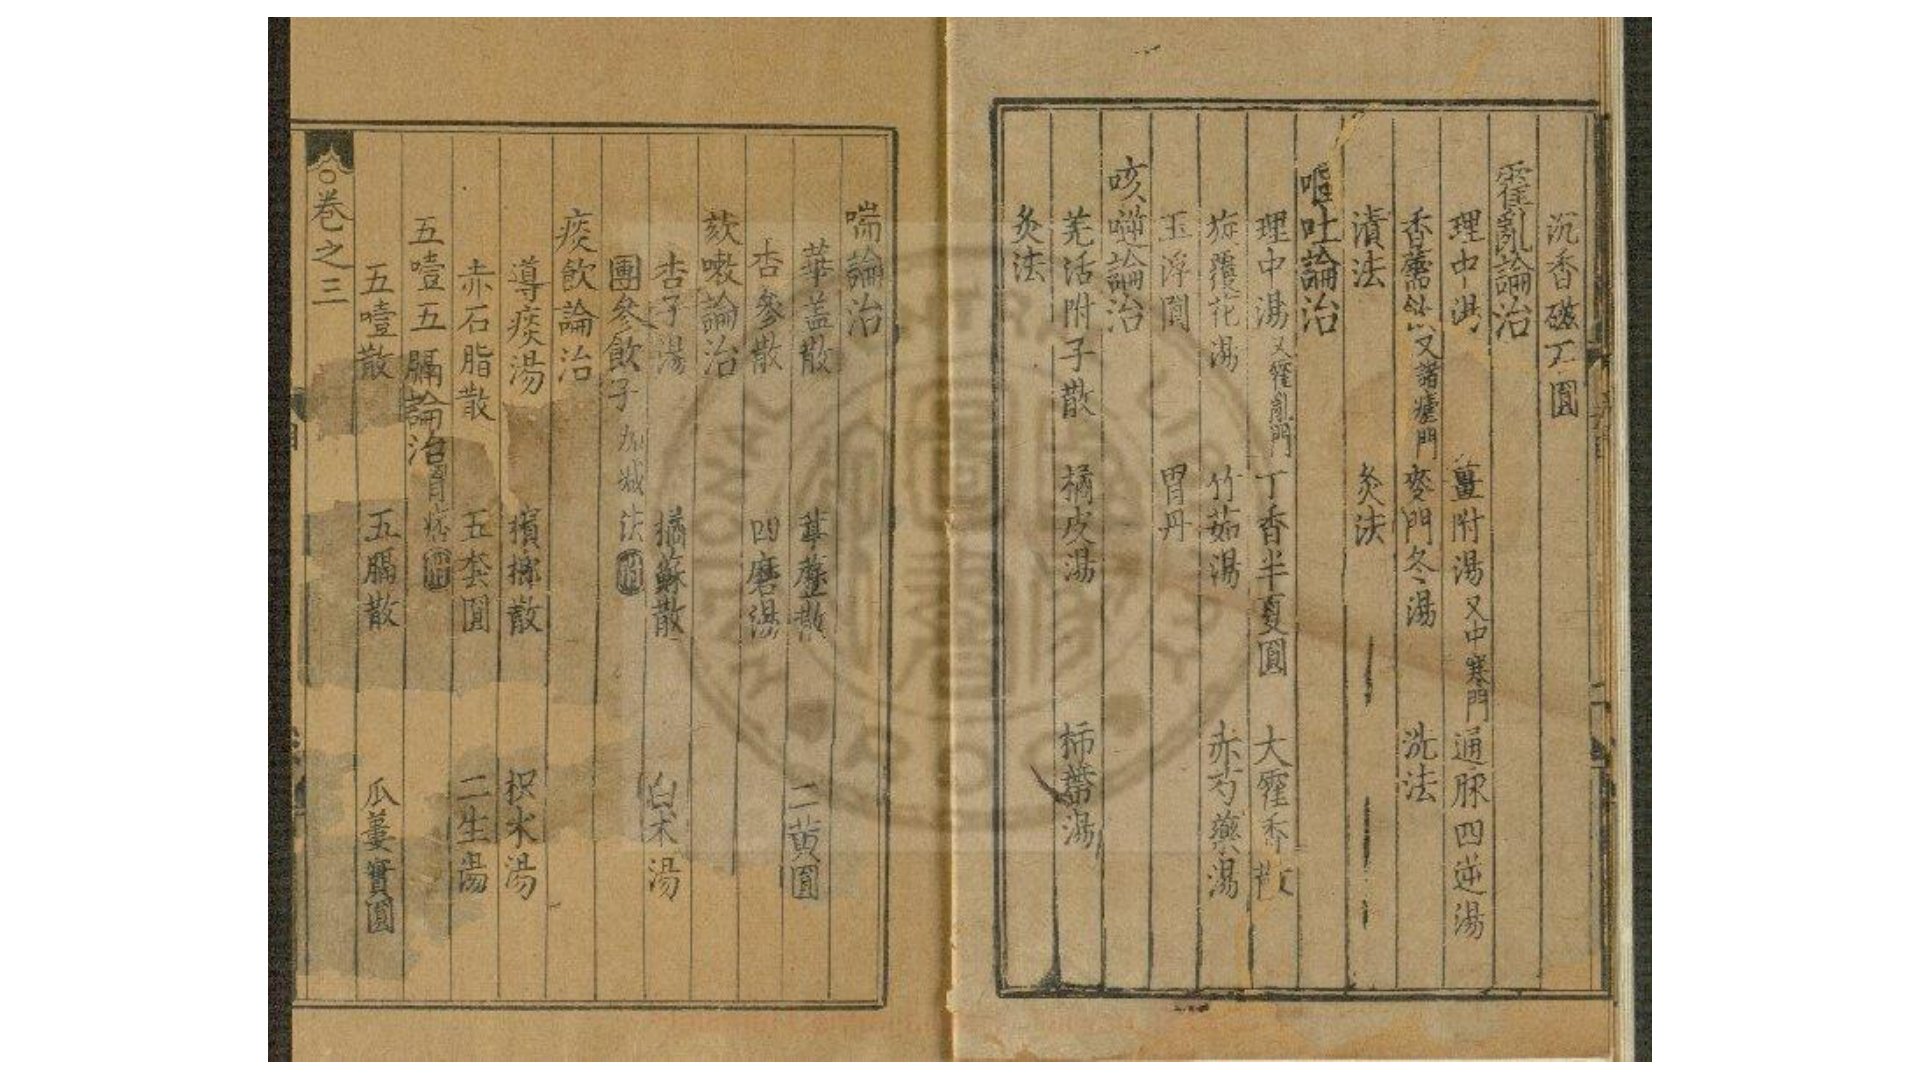 沉香磁石圓
霍亂論治
理中湯 薑附湯又中寒門 通脉四逆湯
香薷飲又諸瘧門 麥門冬湯 洗法
漬法 灸法
嘔吐論治
理中湯又霍亂門 丁香半夏圓 大藿香散
旋覆花湯 竹茹湯 赤芍藥湯
玉浮圓 胃丹
咳逆論治
羌活附子散 橘皮湯 柿蒂湯
灸法
喘論治
華蓋散 葶藶散 二黃圓
杏參散 四磨湯
咳嗽論治
杏子湯 橘蘇散 白术湯
團參飲子加減法附
痰飲論治
導痰湯 檳榔散 枳朮湯
赤石脂散 五套圓 二生湯
五噎五膈論治胃痞附
五噎散 五膈散 瓜蔞實圓
卷之三